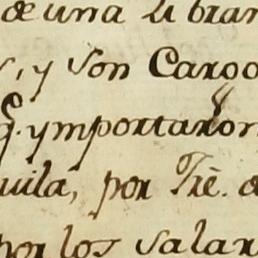 de una libran
, y son Cargo
q. ymportaron
uila, por Trẽ. d
por los salar